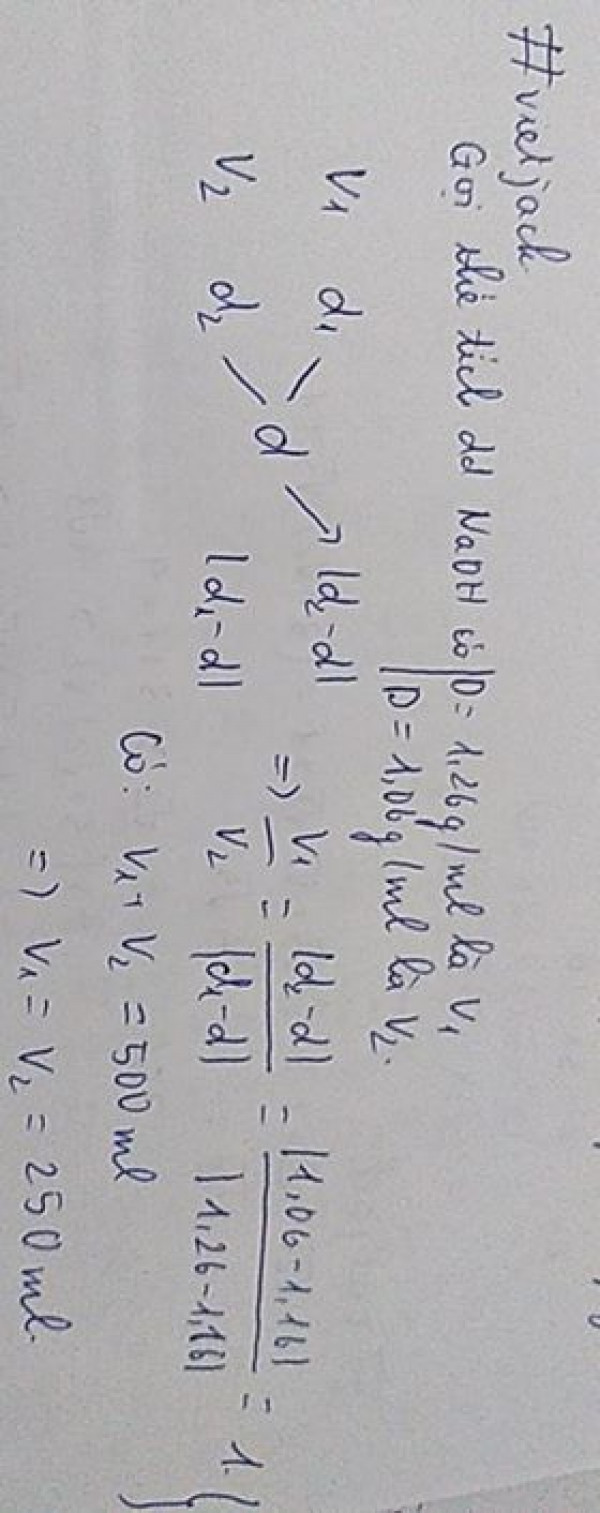 #vietjack
Gọi thể tích dd NaOH có | D = 1,26g/ml là V₁
| D = 1,06g/ml là V₂.
V₁ d₁ |d₂-d|
d => V₁/V₂ = |d₂-d|/|d₁-d| = |1,06-1,16|/|1,26-1,16| = 1.
V₂ d₂ |d₁-d|
Có: V₁+V₂ = 500ml
=> V₁ = V₂ = 250ml.